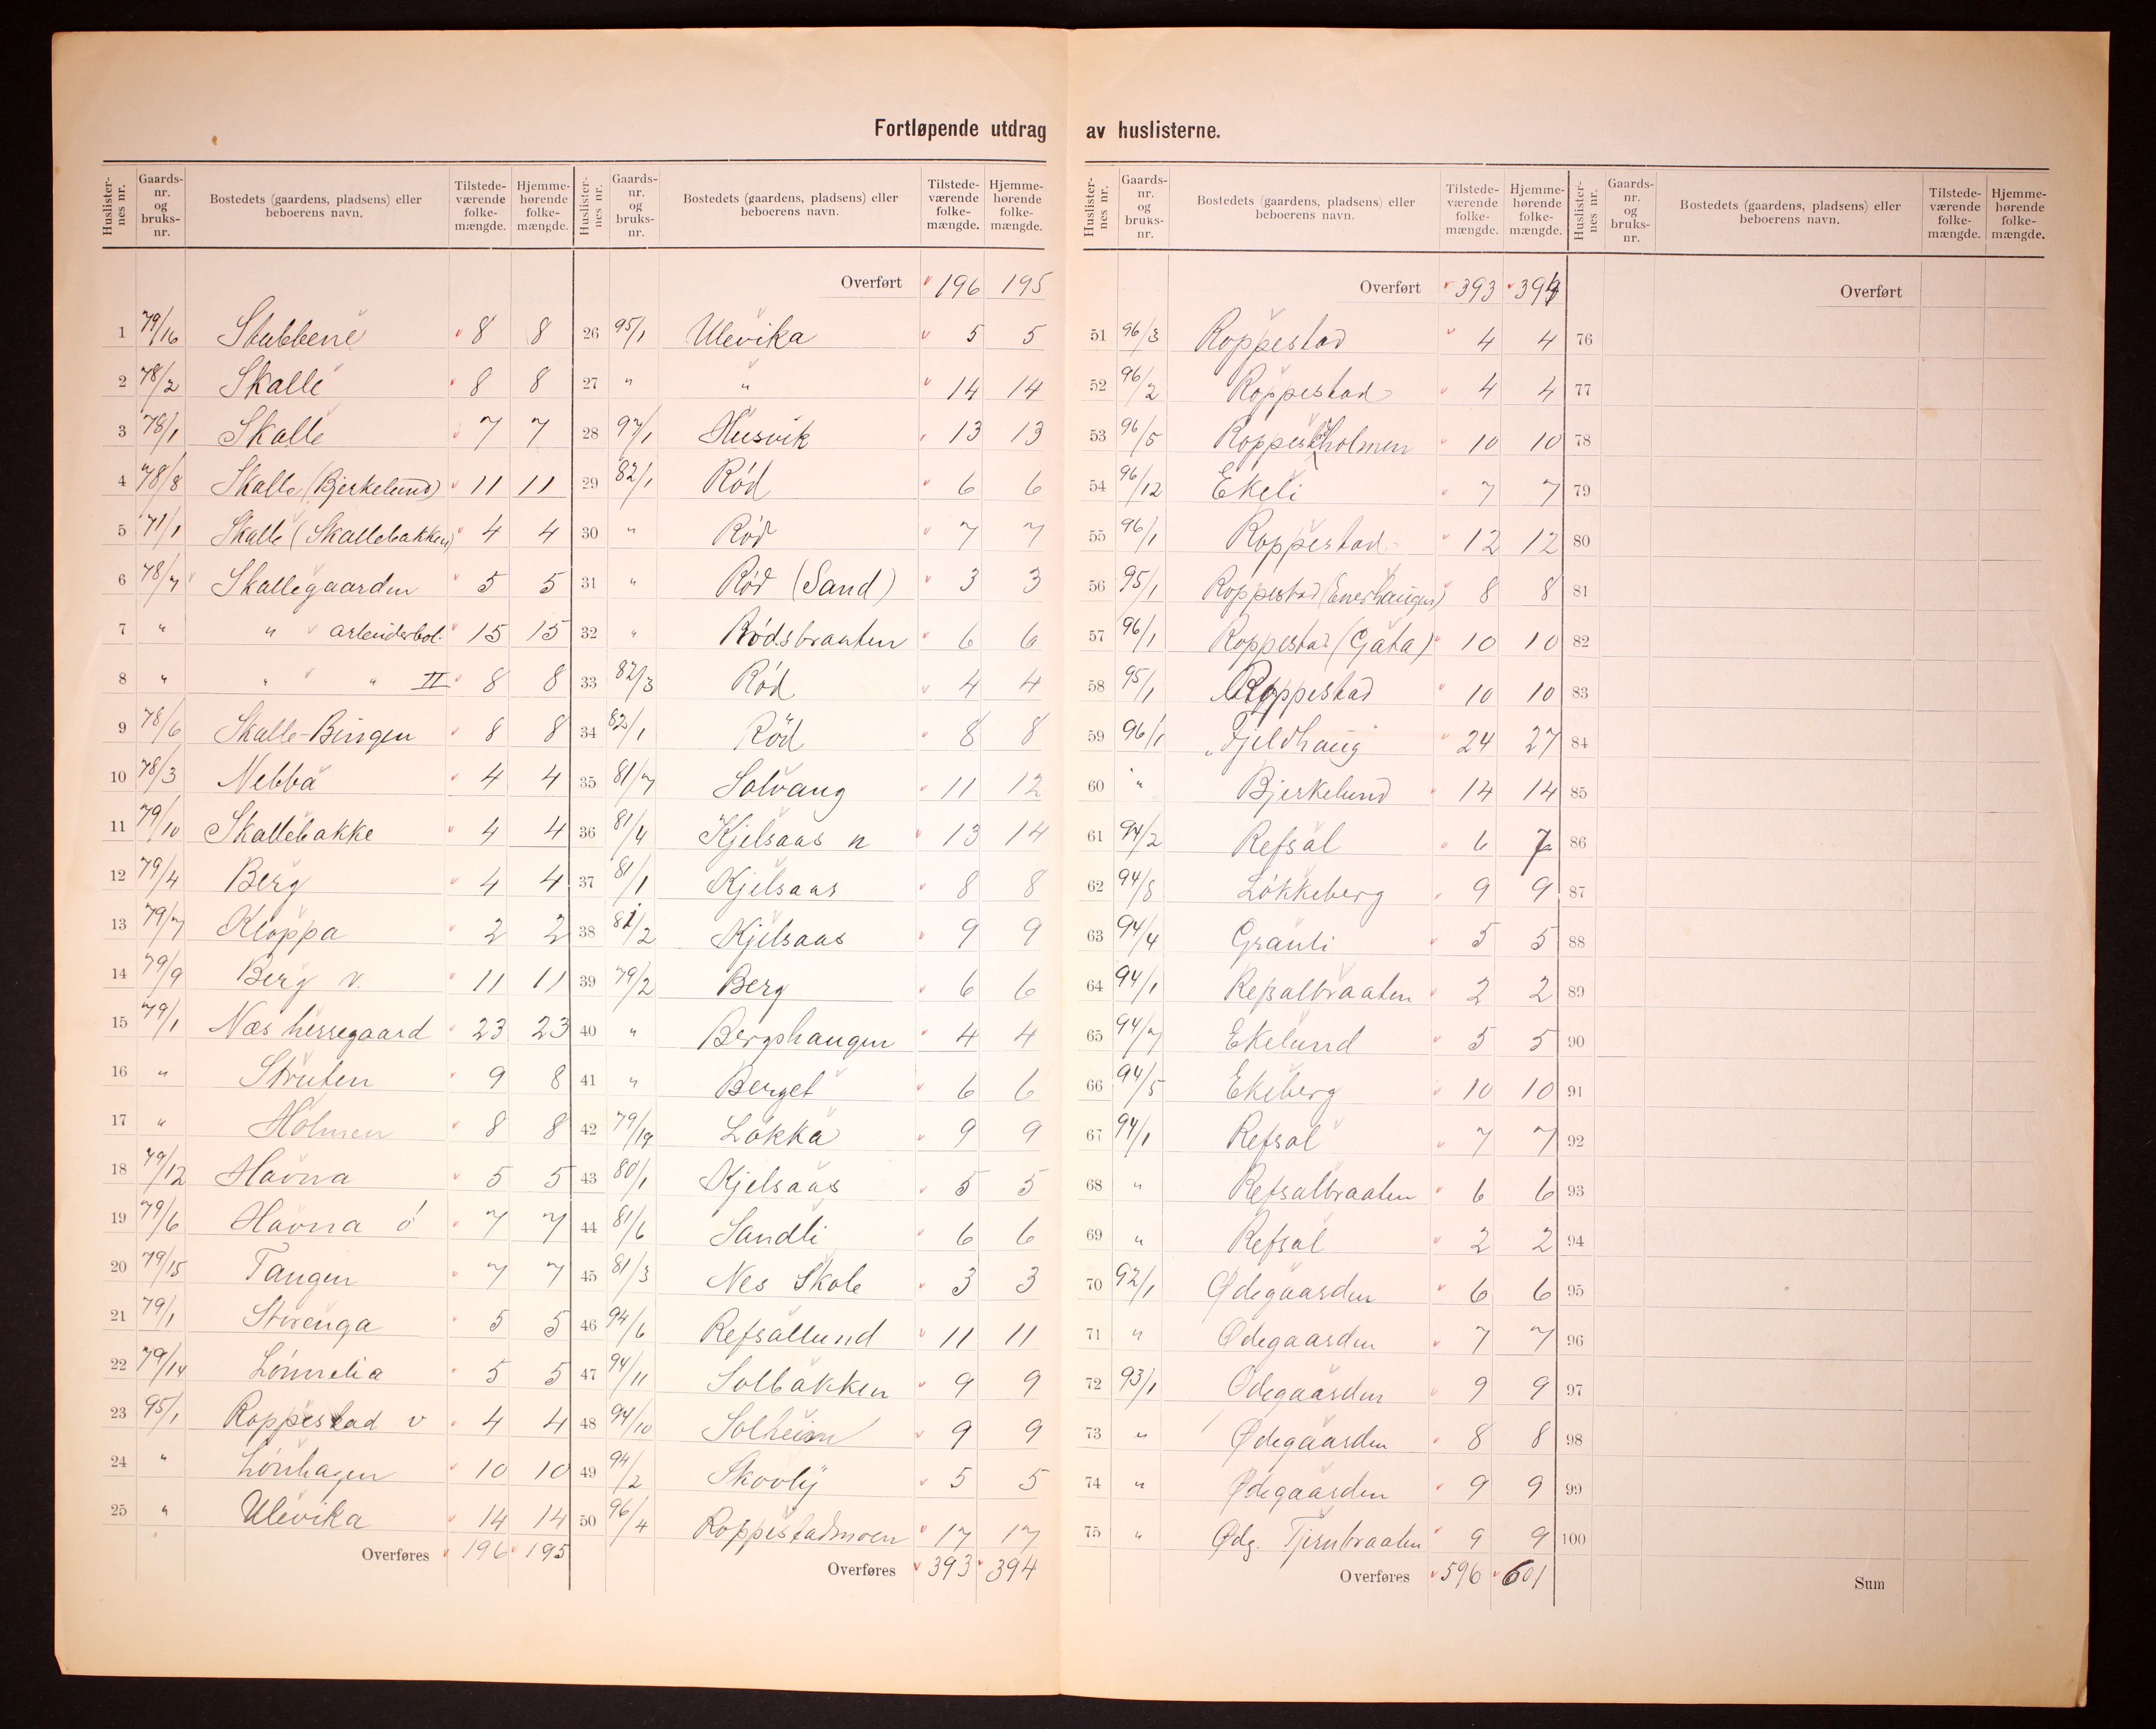 Fortløpende utdrag av huslisterne.
Huslister-nes nr. Gaards-nr. og bruks-nr. Bostedets (gaardens, pladsens) eller beboerens navn. Tilstede-værende folke-mængde. Hjemme-hørende folke-mængde.
1 79/16 Stubbene 8 8
2 78/2 Skalle 8 8
3 78/1 Skalle 7 7
4 78/8 Skalle (Bjerkelund) 11 11
5 71/1 Skalle (Skallebakken) 4 4
6 78/7 Skallegaarden 5 5
7 " " arbeiderbol. 15 15
8 " " " II 8 8
9 78/6 Skalle-Bingen 8 8
10 78/3 Nebba 4 4
11 79/10 Skallebakke 4 4
12 79/4 Berg 4 4
13 79/7 Kloppa 2 2
14 79/9 Berg v. 11 11
15 79/1 Næs herregaard 23 23
16 " Struten 9 8
17 " Holmen 8 8
18 79/12 Havna 5 5
19 79/6 Havna ö 7 7
20 79/15 Tangen 7 7
21 79/1 Storenga 5 5
22 79/14 Lönnelia 5 5
23 95/1 Roppestad v 4 4
24 " Lönhagen 10 10
25 " Ulevika 14 14
Overføres 196 195
Huslister-nes nr. Gaards-nr. og bruks-nr. Bostedets (gaardens, pladsens) eller beboerens navn. Tilstede-værende folke-mængde. Hjemme-hørende folke-mængde.
Overført 196 195
26 95/1 Ulevika 5 5
27 " " 14 14
28 97/1 Husvik 13 13
29 82/1 Röd 6 6
30 " Röd 7 7
31 " Röd (Sand) 3 3
32 " Rödsbraaten 6 6
33 82/3 Röd 4 4
34 82/1 Röd 8 8
35 81/7 Solvang 11 12
36 81/4 Kjelsaas n 13 14
37 81/1 Kjelsaas 8 8
38 81/2 Kjelsaas 9 9
39 79/2 Berg 6 6
40 " Bergshaugen 4 4
41 " Berget 6 6
42 79/19 Løkka 9 9
43 80/1 Kjelsaas 5 5
44 81/6 Sandli 6 6
45 81/3 Nes Skole 3 3
46 94/6 Refsallund 11 11
47 94/11 Solbakken 9 9
48 94/10 Solheim 9 9
49 94/2 Skovly 5 5
50 96/4 Roppestadmoen 17 17
Overføres 393 394
Huslister-nes nr. Gaards-nr. og bruks-nr. Bostedets (gaardens, pladsens) eller beboerens navn. Tilstede-værende folke-mængde. Hjemme-hørende folke-mængde.
Overført 393 394
51 96/3 Roppestad 4 4
52 96/2 Roppestad 4 4
53 96/5 Roppestadholmen 10 10
54 96/12 Ekeli 7 7
55 96/1 Roppestad 12 12
56 95/1 Roppestad (Enerhaugen) 8 8
57 96/1 Roppestad (Gata) 10 10
58 95/1 Roppestad 10 10
59 96/1 Fjeldhaug 24 27
60 " Bjerkelund 14 14
61 94/2 Refsal 6 7
62 94/8 Lökkeberg 9 9
63 94/4 Granli 5 5
64 94/1 Refsalbraaten 2 2
65 94/7 Ekelund 5 5
66 94/5 Ekeberg 10 10
67 94/1 Refsal 7 7
68 " Refsalbraaten 6 6
69 " Refsal 2 2
70 92/1 Ødegaarden 6 6
71 " Ødegaarden 7 7
72 93/1 Ødegaarden 9 9
73 " Ødegaarden 8 8
74 " Ødegaarden 9 9
75 " Ødg. Tjernbraaten 9 9
Overføres 596 601
Huslister-nes nr. Gaards-nr. og bruks-nr. Bostedets (gaardens, pladsens) eller beboerens navn. Tilstede-værende folke-mængde. Hjemme-hørende folke-mængde.
Overført
76
77
78
79
80
81
82
83
84
85
86
87
88
89
90
91
92
93
94
95
96
97
98
99
100
Sum